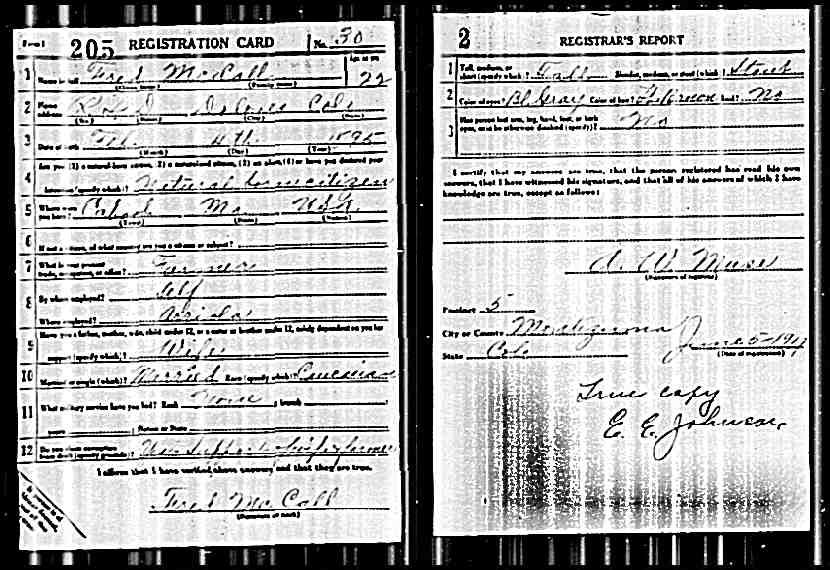 Form 1 205 REGISTRATION CARD No. 30
1 Name in full Fred McCall Age in yrs 22
(Given name) (Family name)
2 Home address Colo
(No.) (Street) (City) (State)
3 Date of birth 4th 1895
(Month) (Day) (Year)
4 Are you (1) a natural-born citizen, (2) a naturalized citizen, (3) an alien, (4) or have you declared your
intention (specify which)? Natural born citizen
5 Where were you born? Cabool Mo USA
(Town) (State) (Nation)
6 If not a citizen, of what country are you a citizen or subject?
7 What is your present trade, occupation, or office? Farmer
8 By whom employed? Self
Where employed? Arriola
9 Have you a father, mother, wife, child under 12, or a sister or brother under 12, solely dependent on you for
support (specify which)? Wife
10 Married or single (which)? Married Race (specify which)? Caucasian
11 What military service have you had? Rank None ; branch
years ; Nation or State
12 Do you claim exemption from draft (specify grounds)? support wife farmer
I affirm that I have verified above answers and that they are true.
Fred McCall
(Signature or mark)
2 REGISTRAR'S REPORT
1 Tall, medium, or short (specify which)? Tall Slender, medium, or stout (which)? Stout
2 Color of eyes? Bl Gray Color of hair? Bald? No
3 Has person lost arm, leg, hand, foot, or both eyes, or is he otherwise disabled (specify)? No
I certify that my answers are true, that the person registered has read his own
answers, that I have witnessed his signature, and that all of his answers of which I have
knowledge are true, except as follows:
A. W. Muse
(Signature of registrar)
Precinct 5
City or County Montezuma June 5-1917
State Col. (Date of registration)
True copy
E. E. Johnson